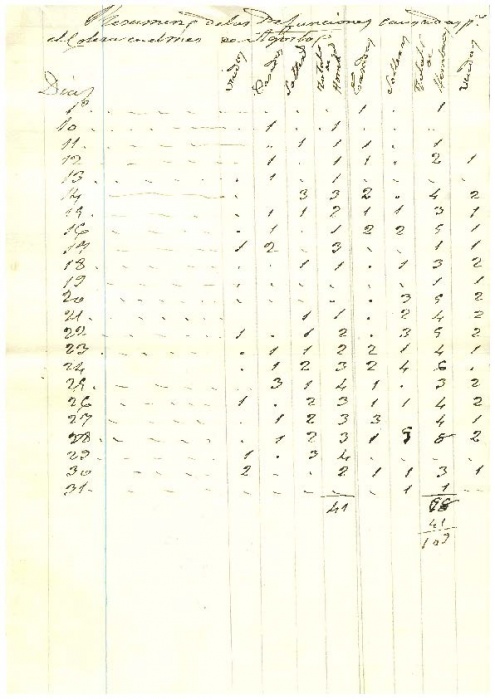 Resumen de las Defunciones causadas pr.
el Colera en el mes de Agosto
Dias viudos Casados Solteros Total de Hombres Casadas Solteras Total de Hembras Viudas
1º - - - . . . . 1 . 1 .
10 - - - . 1 . 1 . . .. .
11 - - - . .. 1 1 1 . 1 .
12 - - - . 1 . 1 1 . 2 1
13 - - - . 1 . 1 . . . .
14 - - - . . 3 3 2 . 4 2
15 - - - . 1 1 2 1 1 3 1
16 - - - . 1 . 1 2 2 5 1
17 - - - 1 2 . 3 . . 1 1
18 - - - . . 1 1 . 1 3 2
19 - - - . . . . . . 1 1
20 - - - . . . . . 3 5 2
21 - - - . . 1 1 . 2 4 2
22 - - - 1 . 1 2 . 3 5 2
23 - - - . 1 1 2 2 1 4 1
24 - - - . 1 2 3 2 4 6 .
25 - - - . 3 1 4 1 . 3 2
26 - - - 1 . 2 3 1 1 4 2
27 - - - . 1 2 3 3 . 4 1
28 - - - . 1 2 3 1 5 8 2
29 - - - 1 . 3 4 . . . .
30 - - - 2 . . 2 1 1 3 1
31 - - - . . . . . 1 1 .
41 68
41
109